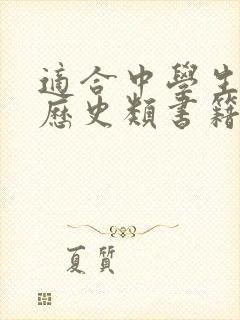 適合中學生
歷史類書籍
夏質